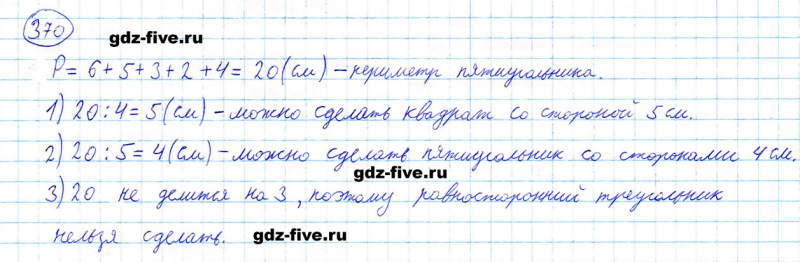 370
gdz-five.ru
P = 6 + 5 + 3 + 2 + 4 = 20 (см) – периметр пятиугольника.
1) 20 : 4 = 5 (см) – можно сделать квадрат со стороной 5 см.
2) 20 : 5 = 4 (см) – можно сделать пятиугольник со сторонами 4 см.
gdz-five.ru
3) 20 не делится на 3, поэтому равносторонний треугольник
нельзя сделать. gdz-five.ru